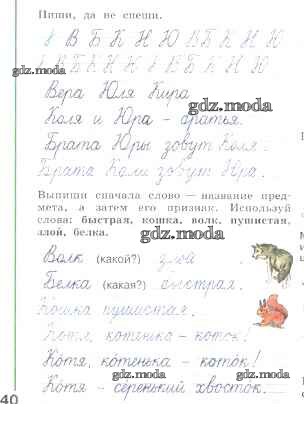 Пиши, да не спеши.
В Б К Н Ю В Б К Н Ю
gdz.moda
В Б К Н Ю В Б К Н Ю
Вера Юля Кира
gdz.moda
Коля и Юра – братья.
Брата Юры зовут Коля.
Брата Коли зовут Юра.
gdz.moda
Выпиши сначала слово — название пред-
мета, а затем его признак. Используй
слова: быстрая, кошка, волк, пушистая,
злой, белка.
gdz.moda
Волк (какой?) злой
Белка (какая?) быстрая.
Кошка пушистая.
gdz.moda
Котя, котенька – коток!
Котя, котенька – коток!
gdz.moda
Котя – серенький хвосток.
gdz.moda
40